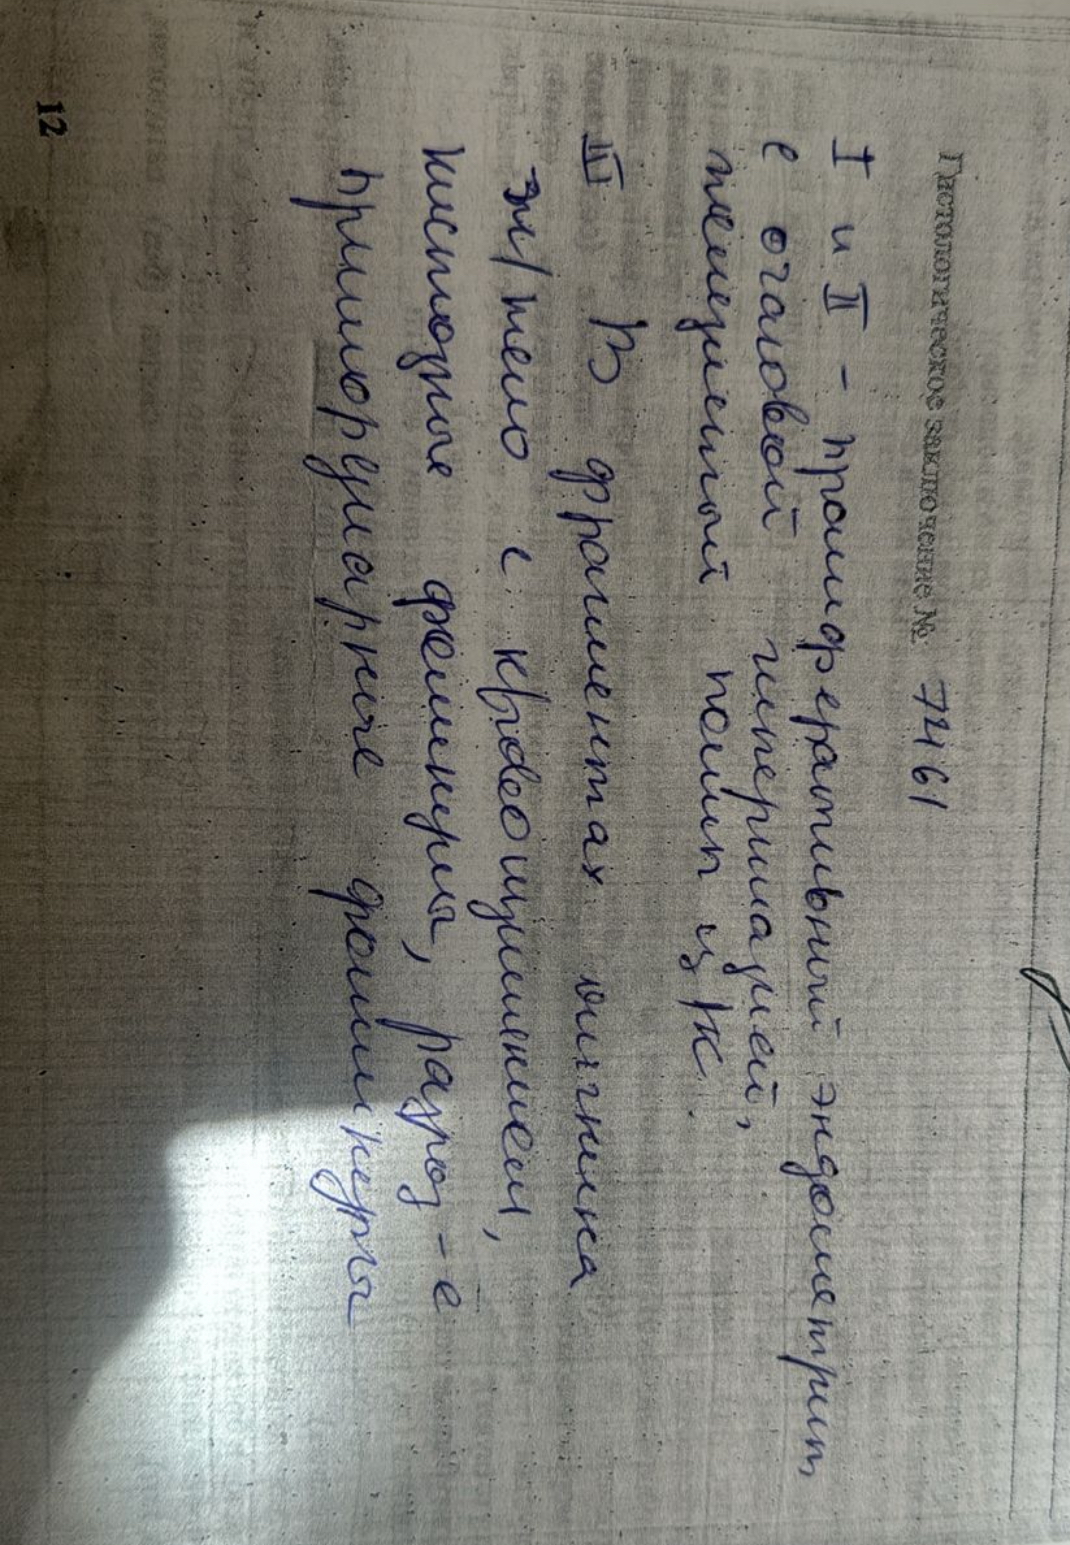 Гистологическое заключение № 72461
I и II - пролиферативный эндометрит
с очаговой гиперплазией,
железистый полип ц/к.
III В фрагментах яичника
ж/тело с кровоизлиянием,
кистозные фолликулы, разроз-е
примордиарные фолликулы
12